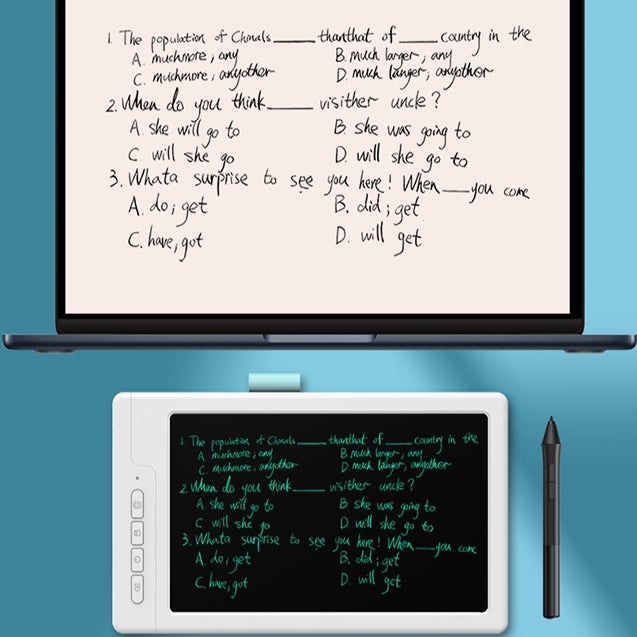 1. The population of Chinals ____ thanthat of ____ country in the
A. muchmore; any B. much larger, any
C. muchmore; anyother D. much larger; anyother
2. When do you think ____ visither uncle?
A. she will go to B. she was going to
C. will she go D. will she go to
3. Whata surprise to see you here! When ____ you come
A. do; get B. did; get
C. have, got D. will get
1. The population of Chinals ____ thanthat of ____ country in the
A. muchmore; any B. much larger, any
C. muchmore; anyother D. much larger, anyother
2. When do you think ____ visither uncle?
A. she will go to B. she was going to
C. will she go D. will she go to
3. Whata surprise to see you here! When ____ you come
A. do; get B. did; get
C. have, got D. will get